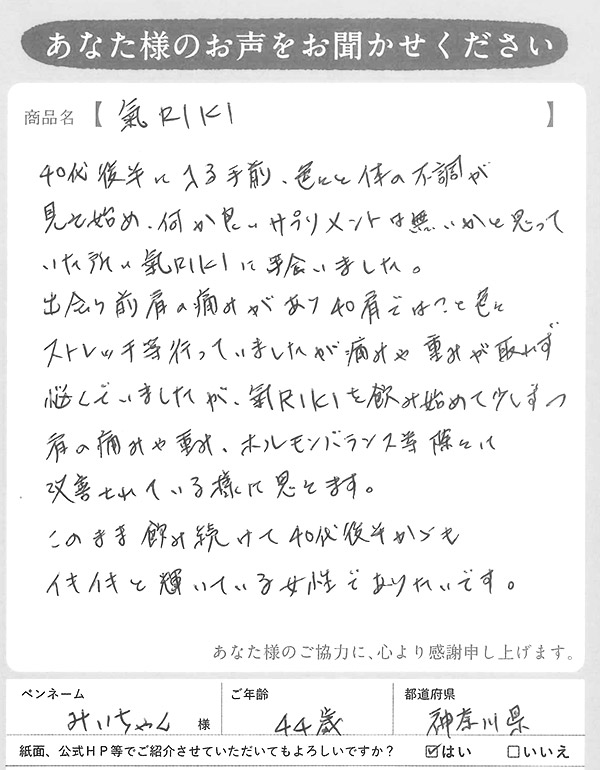 あなた様のお声をお聞かせください
商品名【 氣RIKI 】
40代後半に入る手前、色々と体の不調が
見え始め、何か良いサプリメントは無いかと思って
いた所に氣RIKIに出会いました。
出会う前肩の痛みがあり40肩では?と色々
ストレッチ等行っていましたが痛みや重みが取れず
悩んでいましたが、氣RIKIを飲み始めて少しずつ
肩の痛みや重み、ホルモンバランス等除々に
改善されている様に思えます。
このまま飲み続けて40代後半からも
イキイキと輝いている女性でありたいです。
あなた様のご協力に、心より感謝申し上げます。
ペンネーム ご年齢 都道府県
みいちゃん 様 44歳 神奈川県
紙面、公式HP等でご紹介させていただいてもよろしいですか? ☑はい □いいえ